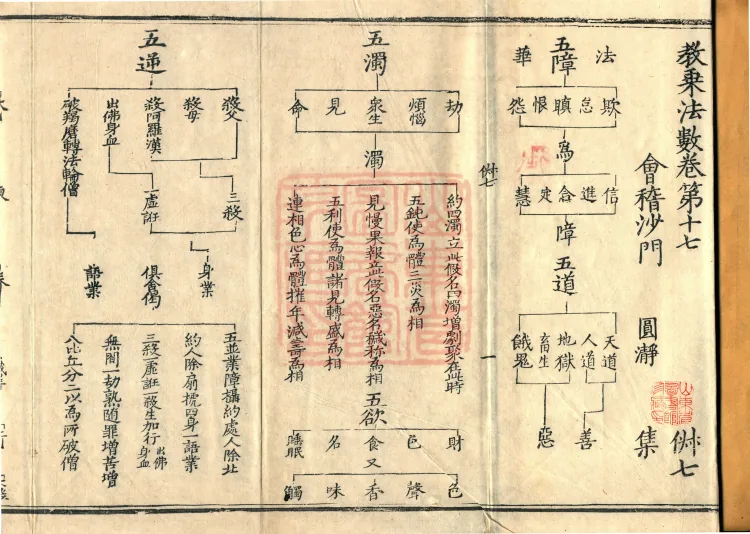 教乘法數卷第十七
會稽沙門 圓瀞 集
𠦜七
法華五障
欺 怠 瞋 恨 怨
為
信 進 念 定 慧
障
五道
天道 人道 地獄 畜生 餓鬼
善 惡
𠦜七
一
五濁
劫 煩惱 衆生 見 命
濁
約四濁立此假名四濁增劇聚在此時
五鈍使為體三災為相
見慢果報立此假名惡名穢称為相
五利使為體諸見轉盛為相
連相色心為體摧年減壽為相
五欲
財 色 食 名 睡眠
又
色 聲 香 味 觸
五逆
殺父 殺母 殺阿羅漢 出佛身血 破羯磨轉法輪僧
三殺 一虛誑
身業 語業
俱舍偈
五並業障攝約處人除北
約人除扇搋四身一語業
三殺一虛誑一殺生加行 出佛身血
無間一劫熟随罪增苦增
八比丘分二以為所破僧